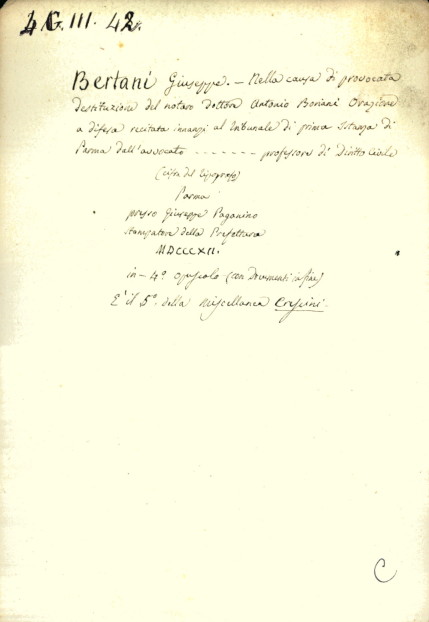 4 G. III. 42.
Bertani Giuseppe. - Nella causa di provocata
destituzione del notaro Dottore Antonio Boriani Orazione
a difesa recitata innanzi al Tribunale di prima Istanza di
Parma dall'avvocato ------- professore di Diritto Civile
(cifra del
Parma
presso Giuseppe Paganino
stampatore della Prefettura
MDCCCXII.
in-4º. opuscolo (con Documenti in fine)
È il 5º. della Miscellanea
C